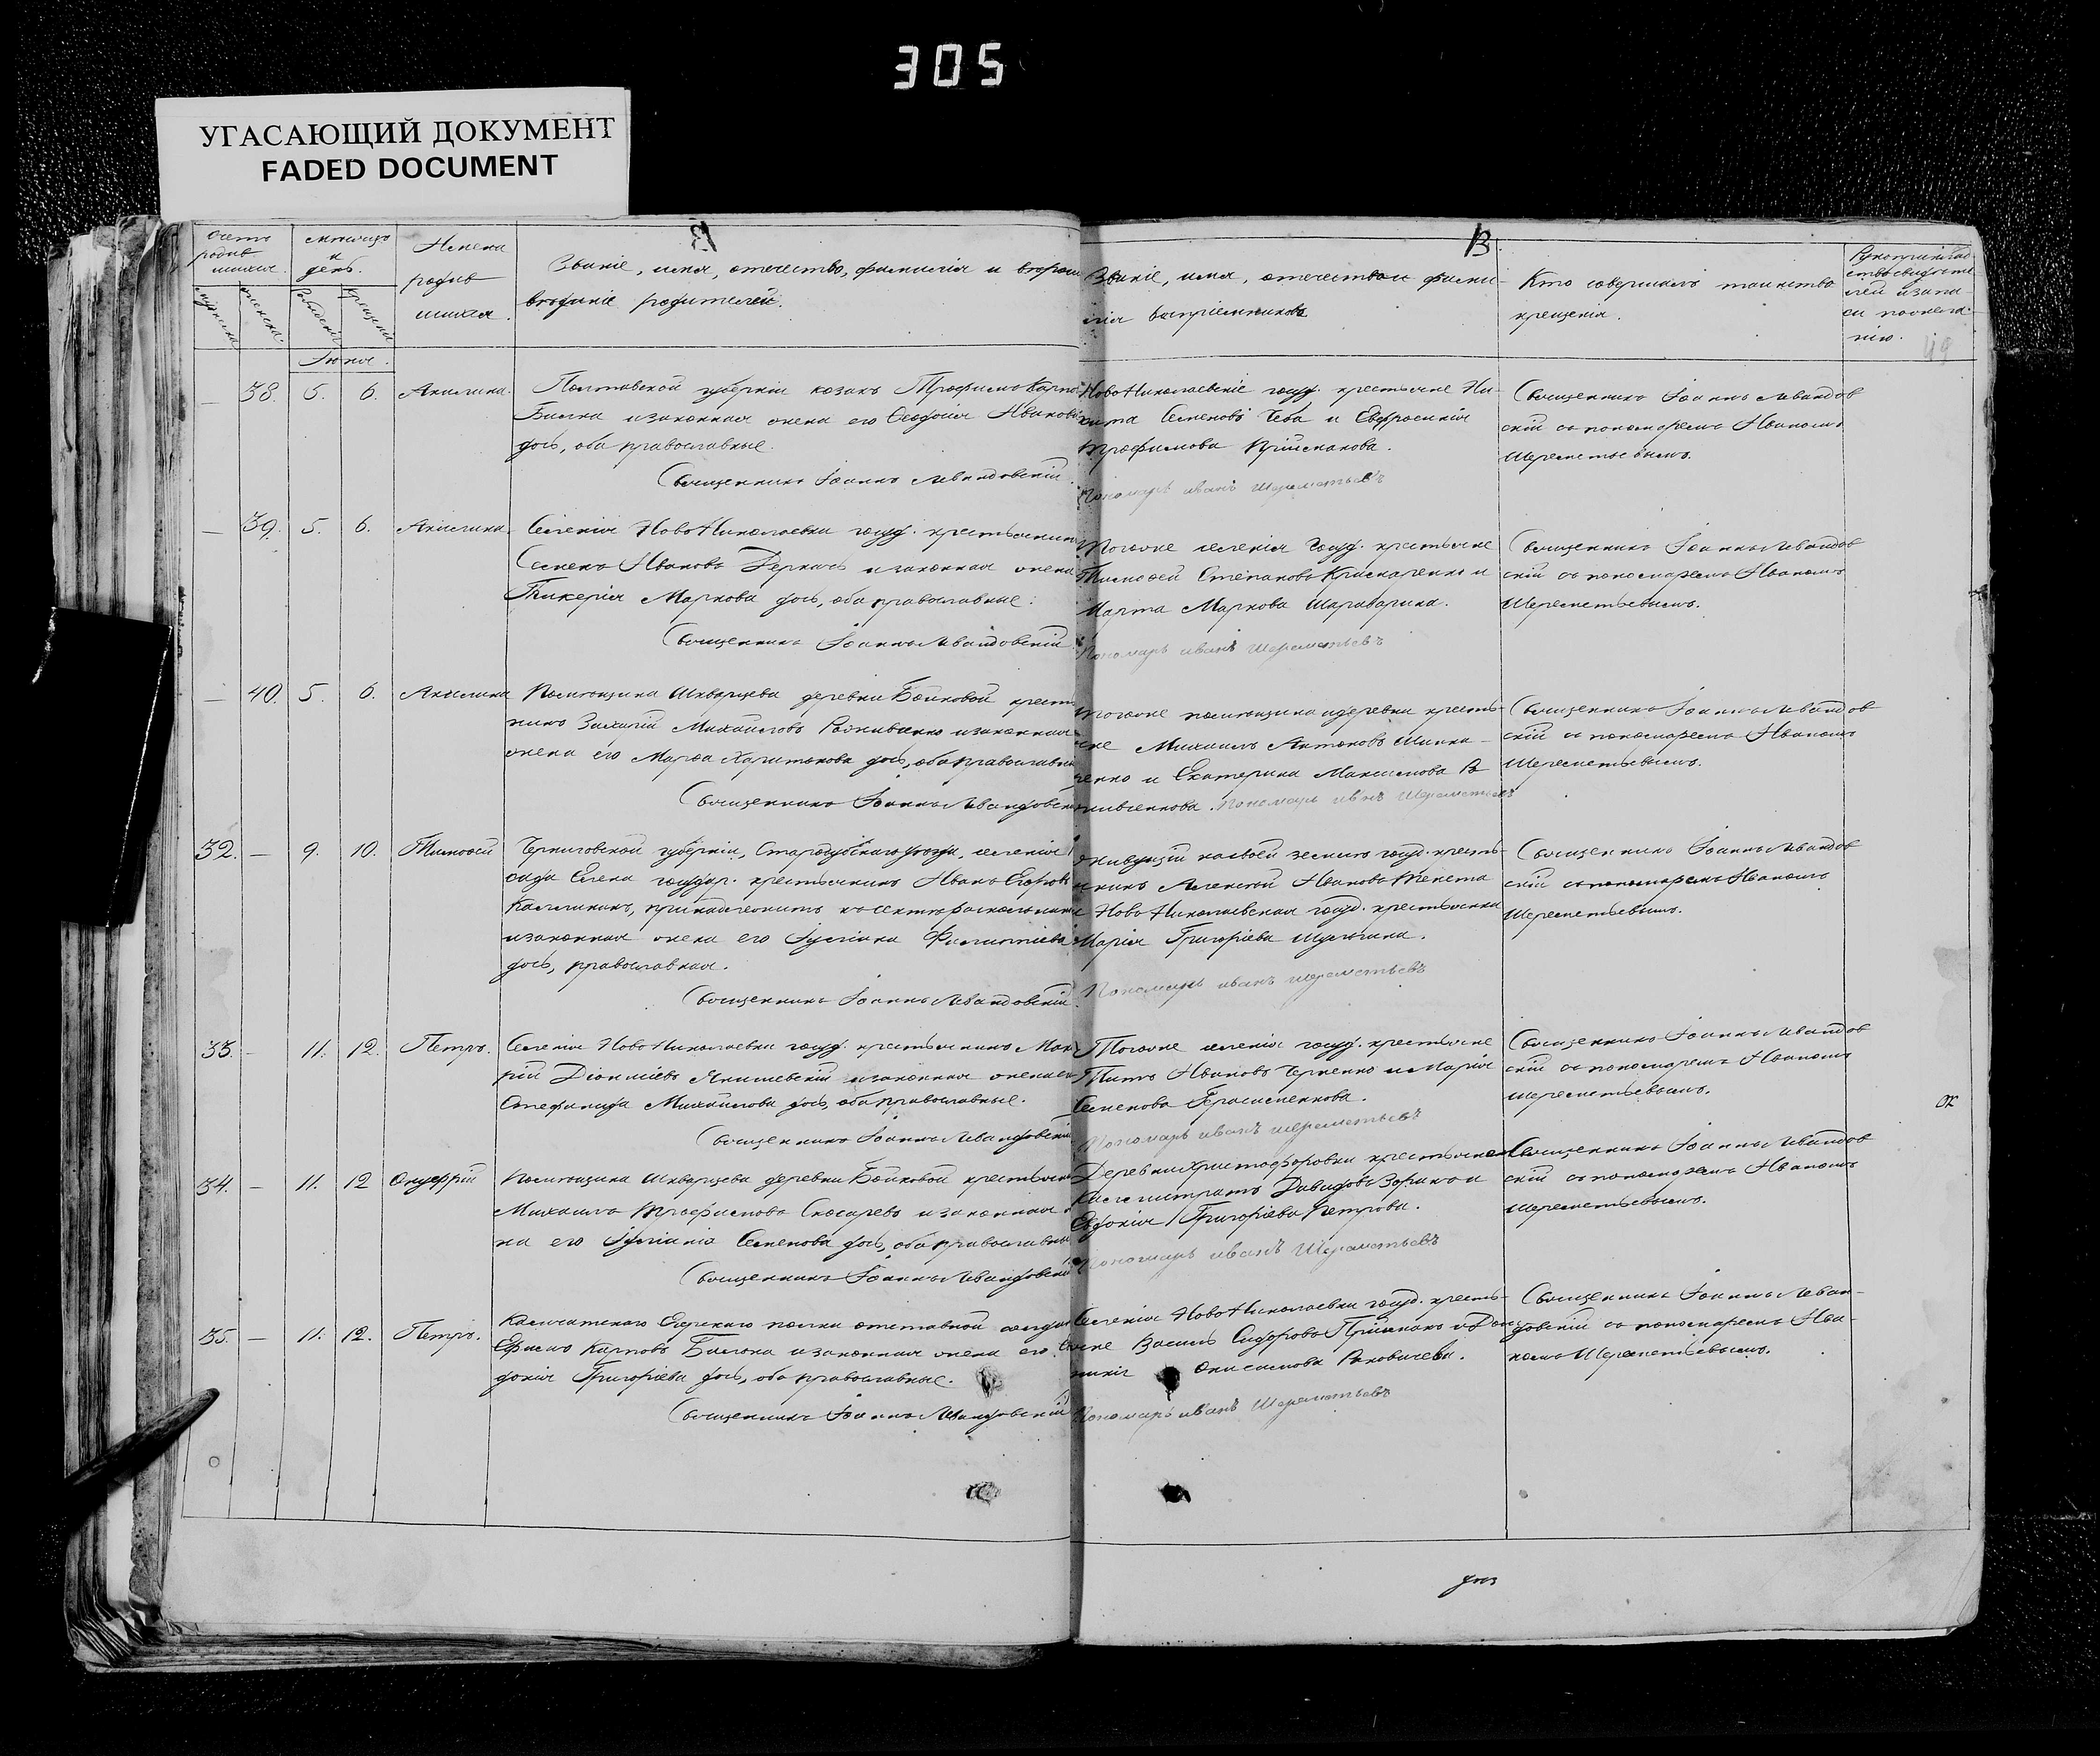 305
УГАСАЮЩИЙ ДОКУМЕНТ
FADED DOCUMENT
Счетъ родив шихся.
мужеска
женска.
Мѣсяцъ и день.
Рожденія
Крещенія
Имена родив шихся.
Званіе, имя, отечество, фамилія и
родителей.
Званіе, имя, отечество и фами-
лія воспріемниковъ
Кто совершалъ таинство
крещенія.
Рукоприклад
ство свидѣте
лей
нію.
Іюня.
38. 5. 6. Акилина. Полтавской губерніи козакъ Трофимъ Карпо
Билка и законная жена его Ѳеодосія Иванова
дочь, оба православные.
Священникъ Іоаннъ Левандовскій.
НовоНиколаевкіе госуд. крестьяне Ни-
кита Семеновъ и Евфросинія
Трофимова Пріймакова.
Пономарь иванъ шереметьевъ
Священникъ Іоаннъ Левандов
скій съ пономаремъ Иваномъ
Шереметьевымъ.
39. 5. 6. Акилина. Селенія НовоНиколаевки госуд. крестьянинъ
Семенъ Ивановъ Деркачъ и законная жена
Гликерія Маркова дочь, оба православные.
Священникъ Іоаннъ Левандовскій
Тогоже селенія Госуд. крестьяне
Тимоѳей Степановъ и
Марта Маркова Шараварина.
Пономарь иванъ шереметьевъ
Священникъ Іоаннъ Левандов
скій съ пономаремъ Иваномъ
Шереметьевымъ.
40. 5. 6. Акилина Помѣщика Шкварцева деревни Бойковой крестья
нинъ Захарій Михайловъ и законная
жена его Марѳа Харитонова дочь, оба православны
Священникъ Іоаннъ Левандовскі
Тогоже помѣщика и деревни кресть-
яне Михаилъ Антоновъ
ченко и Екатерина Максимова
Пономарь иванъ шереметьевъ
Священникъ Іоаннъ Левандов
скій съ пономаремъ Иваномъ
Шереметьевымъ.
32. — 9. 10. Тимоѳей Черниговской губерніи, Стародубскаго уѣзда, селенія
госудр. крестьянинъ Иванъ
принадлежитъ къ сектѣ раскольник
и законная жена его Іуліана Филиппіева
дочь, православная.
Священникъ Іоаннъ Левандовскій.
живущій на своей землѣ госуд. кресть-
янинъ Алексѣй Ивановъ
и НовоНиколаевская госуд. крестьянка
Марія Григоріева Шульгина.
Пономарь иванъ шереметьевъ
Священникъ Іоаннъ Левандов
скій съ пономаремъ Иваномъ
Шереметьевымъ.
33. — 11. 12. Петръ. Селенія НовоНиколаевки госуд. крестьянинъ Мак
рій Діонисіевъ Янишевскій и законная жена ег
Стефанида Михайлова дочь, оба православные.
Священникъ Іоаннъ Левандовскі
Тогоже селенія госуд. крестьяне
Титъ Ивановъ Черненко и Марія
Семенова Герасименкова.
Пономарь иванъ шереметьевъ
Священникъ Іоаннъ Левандов
скій съ пономаремъ Иваномъ
шереметьевымъ.
34. — 11. 12 Онуфрій Помѣщика Шкварцева деревни Бойковой крестьяни
Михаилъ Трофимовъ Слюсаревъ и законная
на его Іуліанія Семенова дочь, оба православны
Священникъ Іоаннъ Левандовскі
Деревни Христофоровки крестьяне
Каллистратъ Давидовъ и
Евдокія Григоріева Петрова.
Пономарь иванъ Шереметьевъ
Священникъ Іоаннъ Левандов
скій съ пономаремъ Иваномъ
шереметьевымъ.
35. — 11. 12. Петръ. Камчатскаго Егерскаго полка отставной солдат
Ефимъ Карповъ Билка и законная жена его Ев
докія Григоріева дочь, оба православные.
Священникъ Іоаннъ Левандовскій
Селенія НовоНиколаевки госуд. кресть-
яне Василь Сидоровъ Приймакъ и Дом
никія Онисимова
Пономарь иванъ Шереметьевъ
Священникъ Іоаннъ Леван-
довскій съ пономаремъ Ива-
номъ Шереметьевымъ.